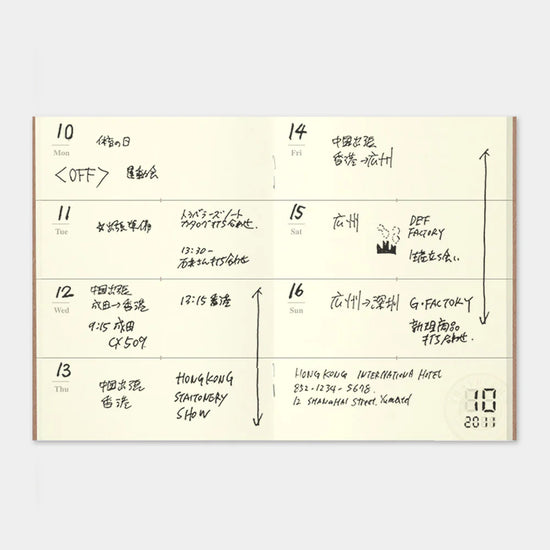 10
Mon
体育の日
<OFF> 運動会
11
Tue
☆出張準備
トラベラーズノート
カタログ打ち合わせ.
13:30-
打ち合わせ
12
Wed
中国出張
成田→香港
9:15 成田
CX509
13:15 香港
13
Thu
中国出張
香港
HONG KONG
STAITONERY
SHOW
14
Fri
中国出張
香港→広州
15
Sat
広州
DEF
FACTORY
立ち会い
16
Sun
広州→深圳
G・FACTORY
新規商品
打ち合わせ.
HONG KONG INTERNATIONA HOTEL
852-1234-5678.
12 SHANGHAI Street. Yumatei
10
2011